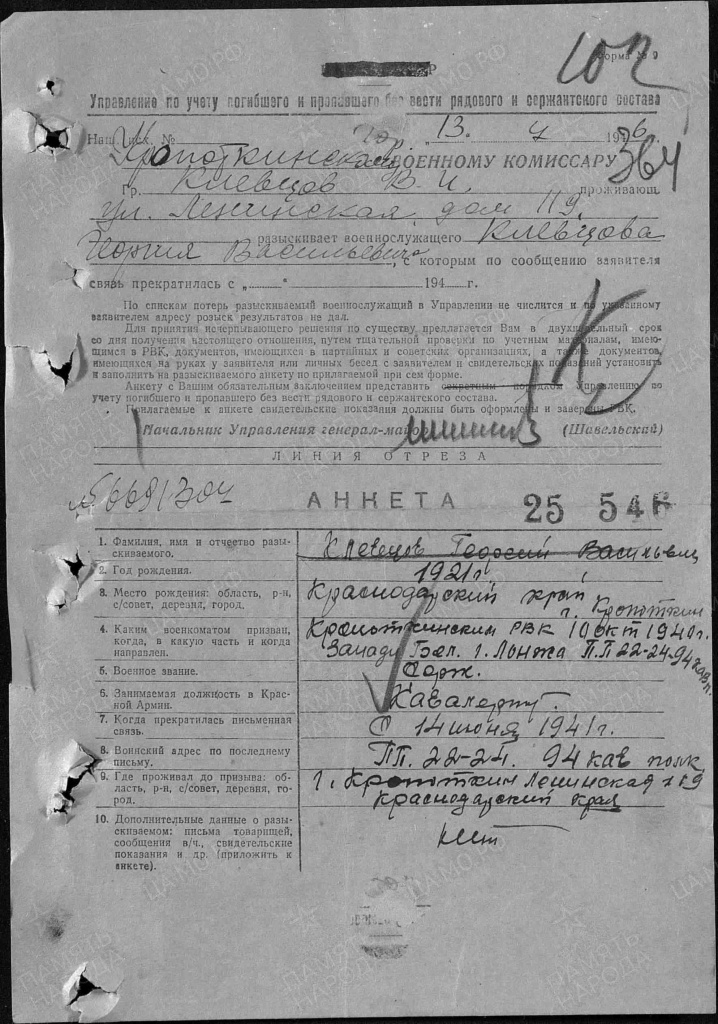 102
Форма № 9
Управление по учету погибшего и пропавшего без вести рядового и сержантского состава
Наш исх. № „13. 4 1946.
Кропоткинскому ВОЕННОМУ КОМИССАРУ 364
Гр. Клевцов В. И. проживающ
ул. Ленинская, дом 119.
разыскивает военнослужащего Клевцова
Георгия Васильевича, с которым по сообщению заявителя
связь прекратилась с „ “ 194 г.
По спискам потерь разыскиваемый военнослужащий в Управлении не числится и по указанному
заявителем адресу розыск результатов не дал.
Для принятия исчерпывающего решения по существу предлагается Вам в двухнедельный срок
со дня получения настоящего отношения, путем тщательной проверки по учетным материалам, имею-
щимся в РВК, документов, имеющихся в партийных и советских организациях, а также документов,
имеющихся на руках у заявителя или личных бесед с заявителем и свидетельских показаний установить
и заполнить на разыскиваемого анкету по прилагаемой при сем форме.
Анкету с Вашим обязательным заключением представить секретным порядком Управлению по
учету погибшего и пропавшего без вести рядового и сержантского состава.
Прилагаемые к анкете свидетельские показания должны быть оформлены и заверены РВК.
Начальник Управления генерал-майор (Шавельский)
ЛИНИЯ ОТРЕЗА
АНКЕТА 25 546
1. Фамилия, имя и отчество разы-
скиваемого.
Клевцов Георгий Васильевич
2. Год рождения.
1921 г.
3. Место рождения: область, р-н,
с/совет, деревня, город.
Краснодарский край
г. Кропоткин
4. Каким военкоматом призван,
когда, в какую часть и когда
направлен.
Кропоткинским РВК 10 окт 1940 г.
Запад. Бел. г. Ломжа П.П 22-24-94 кав п.
5. Военное звание.
Серж.
6. Занимаемая должность в Крас-
ной Армии.
Кавалерист.
7. Когда прекратилась письменная
связь.
С 14 июня 1941 г.
8. Воинский адрес по последнему
письму.
ПП. 22-24. 94 кав полк
9. Где проживал до призыва: об-
ласть, р-н, с/совет, деревня, го-
род.
г. Кропоткин Ленинская 119
Краснодарский края
10. Дополнительные данные о разы-
скиваемом: письма товарищей,
сообщения в/ч., свидетельские
показания и др. (приложить к
анкете).
нет